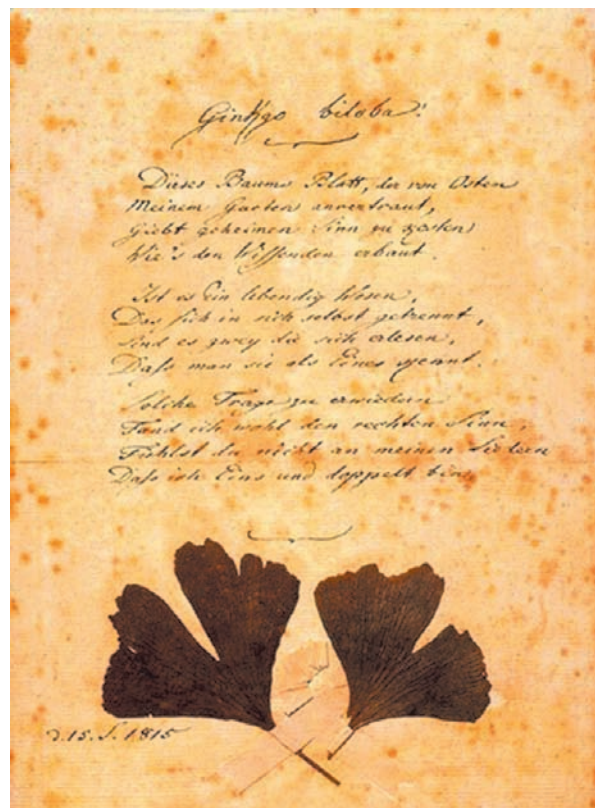 Ginkgo biloba!
Dieses Baums Blatt, der von Osten
Meinem Garten anvertraut,
Giebt geheimen Sinn zu kosten
Wie's den Wissenden erbaut.
Ist es Ein lebendig Wesen,
Das sich in sich selbst getrennt,
Sind es zwey die sich erlesen,
Dass man sie als Eines kennt.
Solche Frage zu erwiedern
Fand ich wohl den rechten Sinn,
Fühlst du nicht an meinen Liedern
Dass ich Eins und doppelt bin
d. 15. S. 1815